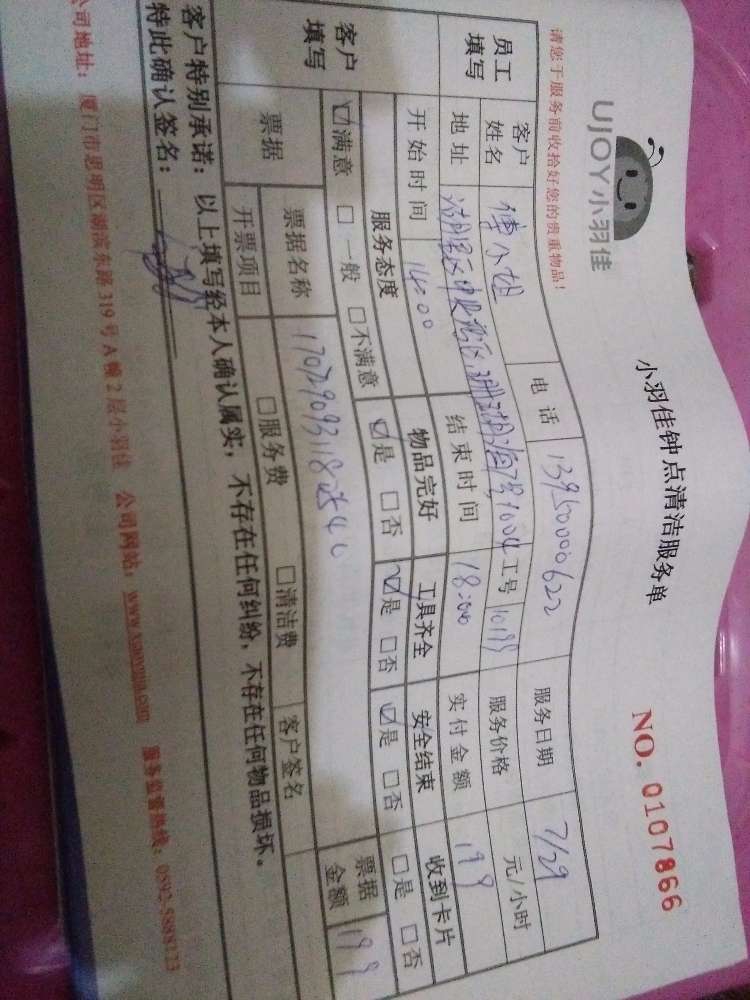 请您于服务前收拾好您的贵重物品!
UJOY小羽佳
小羽佳钟点清洁服务单
NO. 0107866
员工填写
客户姓名
小姐
电话
13950000622
服务日期
7/29
地址
工号
10199
服务价格
元/小时
开始时间
14:00
结束时间
18:00
实付金额
199
客户填写
服务态度
物品完好
工具齐全
安全结束
收到卡片
☑满意 □一般 □不满意
☑是 □否
☑是 □否
☑是 □否
□是 □否
票据
票据名称
票据金额
199
开票项目
□服务费
□清洁费
客户签名
客户特别承诺:以上填写经本人确认属实,不存在任何纠纷,不存在任何物品损坏。
特此确认签名:
公司地址:厦门市思明区湖滨东路319号A幢2层小羽佳 公司网站:www.xiaoyujia.com 服务监督热线:0592-5888123